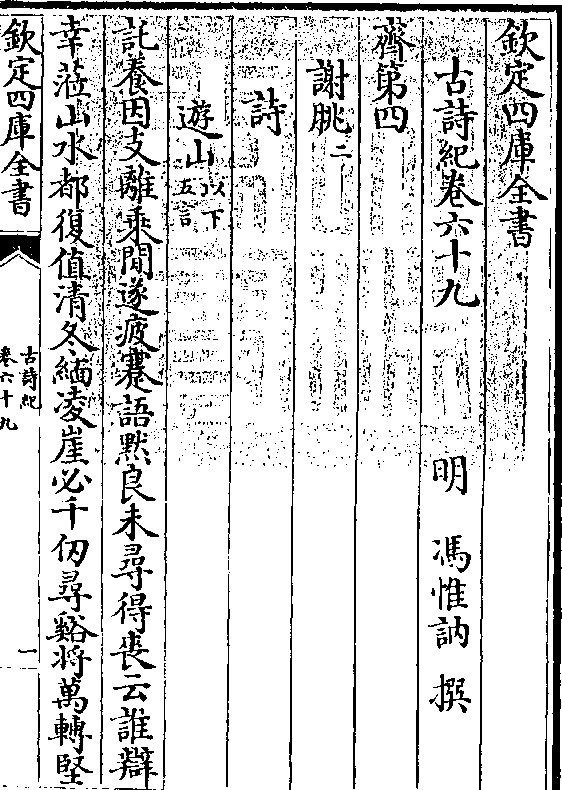 欽定四庫全書
古詩紀卷六十九
明 馮惟訥 撰
齊第四
謝朓二
詩
遊山以下五言
託養因支離乘閒遂疲蹇語黙良未尋得喪云誰辯
幸蒞山水都復值清冬緬凌崖必千仞尋谿將萬轉堅
欽定四庫全書
古詩紀
卷六十九
一